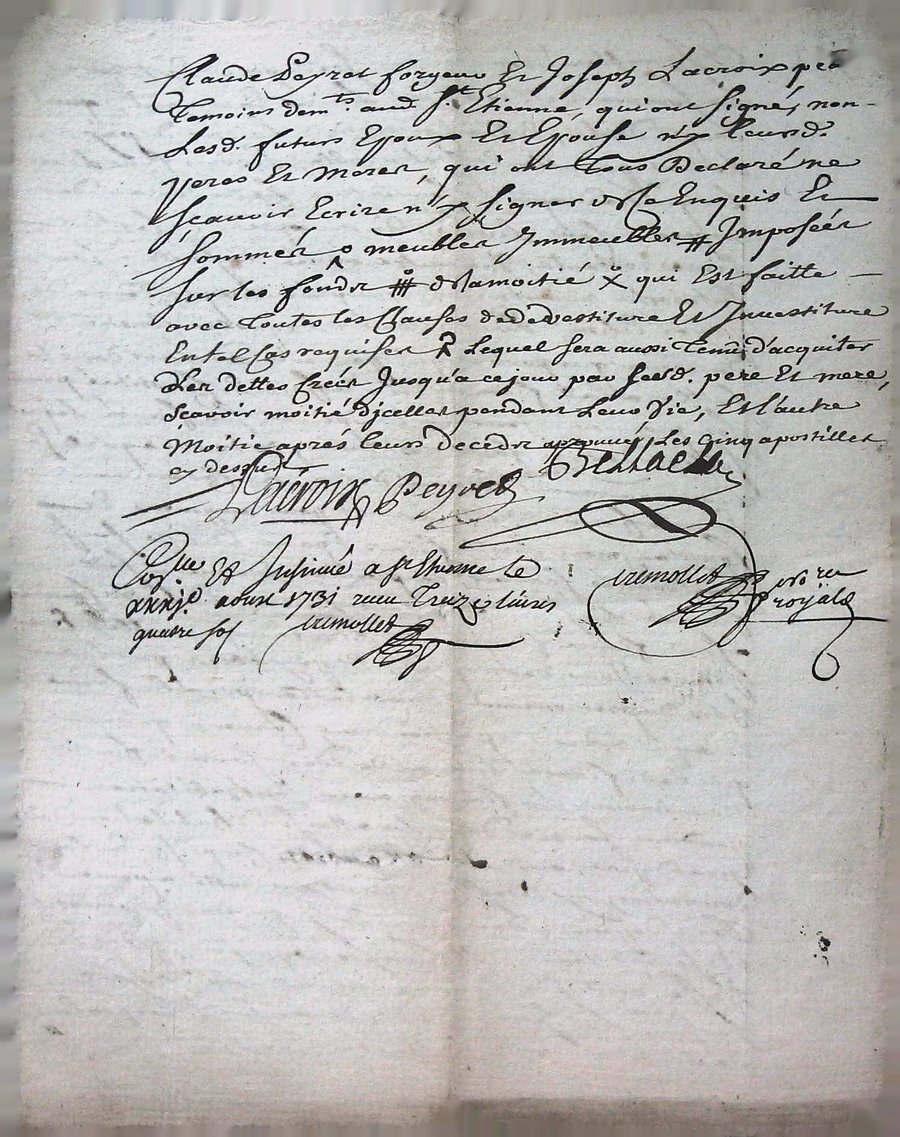 Claude Peyret forgeur Et Joseph Lacroix pra
Temoins dem.ts aud. St Etienne, qui ont signé, non
Lesd. futurs Epoux Et Epouse ny leursd.
peres Et meres, qui ont Tous Declaré ne
sçavoir Ecrire ny signer de ce Enquis Et
sommés o meubles Immeubles # Imposées
sur les fonds # de la moitié x qui Est faitte
avec Toutes les Clauses de devestiture Et Investiture
En tel cas requises Lequel sera aussi Tenu d'acquiter
Les dettes Creés Jusqu'a ce jour par sesd. pere Et mere,
sçavoir moitié d'jcelles pendant Leur Vie, Et l'autre
Moitié aprés leurs decéds approuvé Les Cinq apostilles
cy dessus
Lacroix Peyret
Con.lle Et Insinué a St Etienne le
xxxje aoust 1731 receu Treize livres
quatre sols
tremollet
tremollet no.re
royal